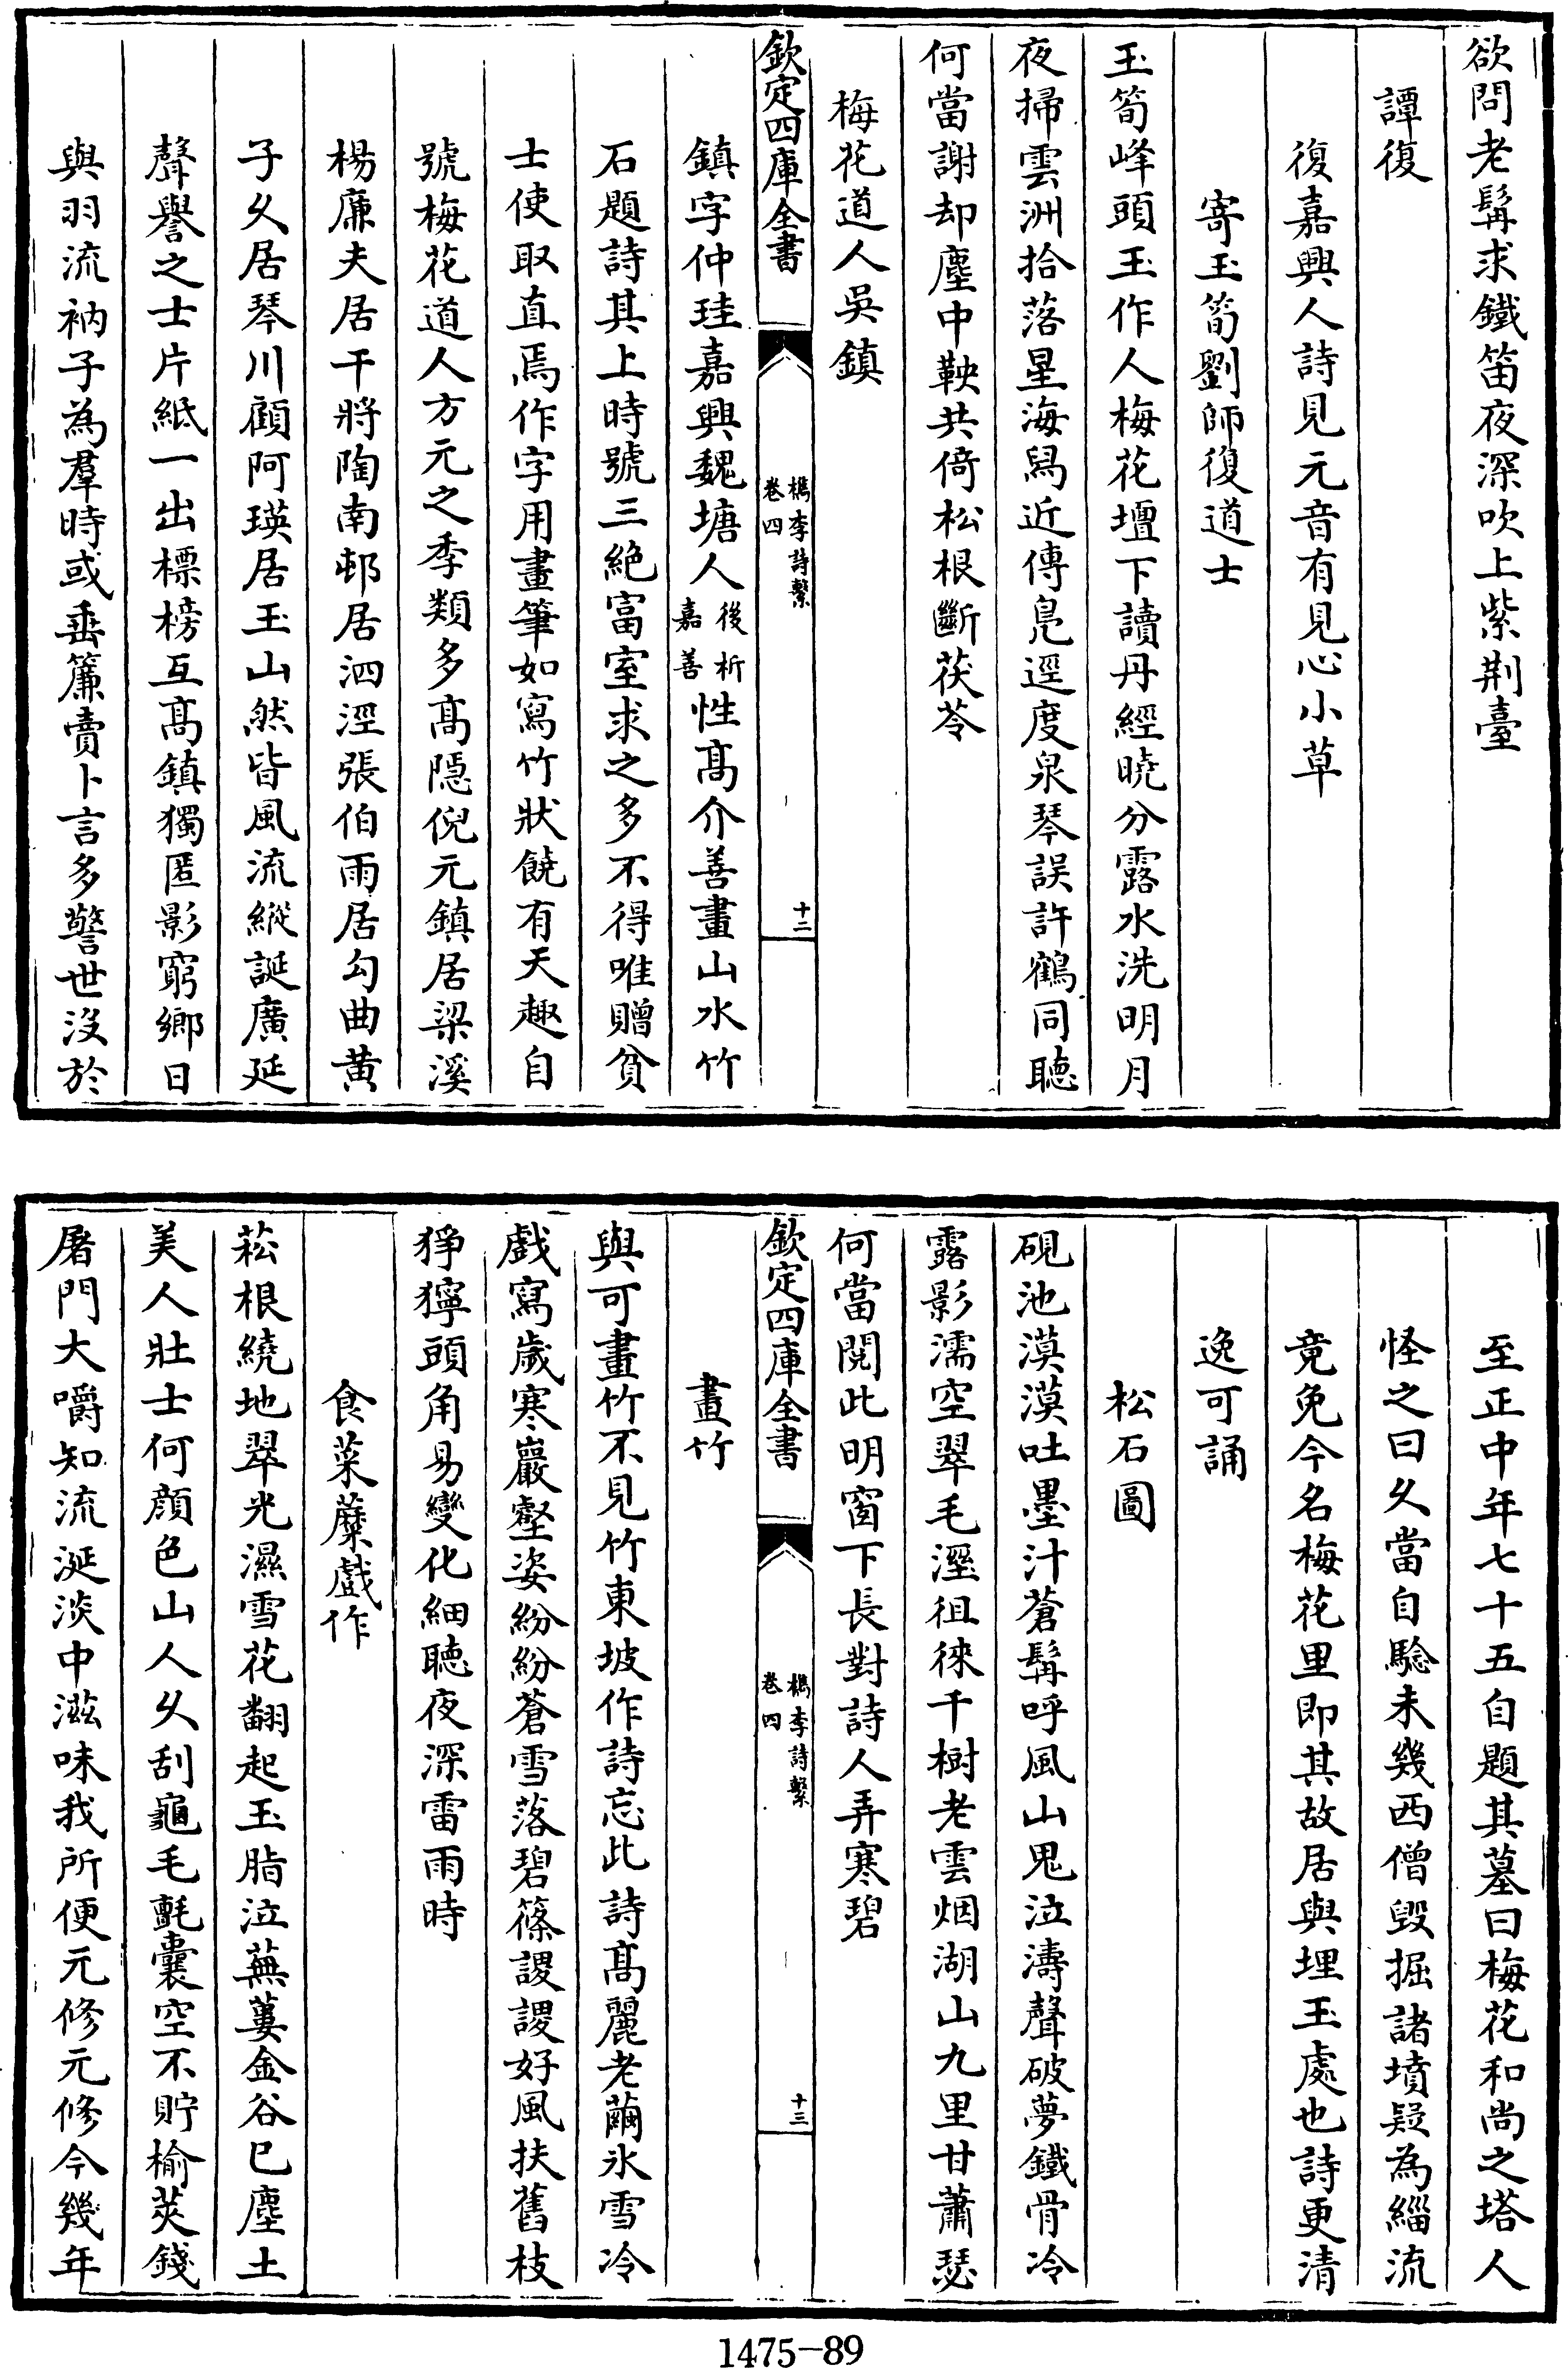 欲問老髯求鐵笛夜深吹上紫荆臺
譚復
復嘉興人詩見元音有見心小草
寄玉筍劉師復道士
玉筍峰頭玉作人梅花壇下讀丹經曉分露水洗明月
夜掃雲洲拾落星海舄近傳鳧逕度泉琴誤許鶴同聽
何當謝却塵中鞅共倚松根斸茯苓
梅花道人吳鎮
欽定四庫全書
檇李詩繫
卷四
十二
鎮字仲珪嘉興魏塘人後析嘉善性髙介善畫山水竹
石題詩其上時號三絶富室求之多不得唯贈貧
士使取直焉作字用畫筆如寫竹狀饒有天趣自
號梅花道人方元之季類多髙隠倪元鎮居梁溪
楊廉夫居干將陶南邨居泗涇張伯雨居勾曲黄
子久居琴川顧阿瑛居玉山然皆風流縱誕廣延
聲譽之士片紙一出標榜互髙鎮獨匿影窮鄉日
與羽流衲子為羣時或垂簾賣卜言多警世沒於
至正中年七十五自題其墓曰梅花和尚之塔人
怪之曰久當自驗未幾西僧毁掘諸墳疑為緇流
竟免今名梅花里即其故居與埋玉處也詩更清
逸可誦
松石圖
硯池漠漠吐墨汁蒼髯呼風山鬼泣濤聲破夢鐵骨冷
露影濡空翠毛溼徂徠千樹老雲烟湖山九里甘蕭瑟
何當閱此明窗下長對詩人弄寒碧
欽定四庫全書
檇李詩繫
卷四
十三
畫竹
與可畫竹不見竹東坡作詩忘此詩髙麗老繭氷雪冷
戲寫歲寒巖壑姿紛紛蒼雪落碧篠謖謖好風扶舊枝
猙獰頭角易變化細聽夜深雷雨時
食菜糜戲作
菘根繞地翠光濕雪花翻起玉脂泣蕪蔞金谷已塵土
美人壯士何顔色山人久刮龜毛氈囊空不貯榆莢錢
屠門大嚼知流涎淡中滋味我所便元修元修今幾年
1475-89